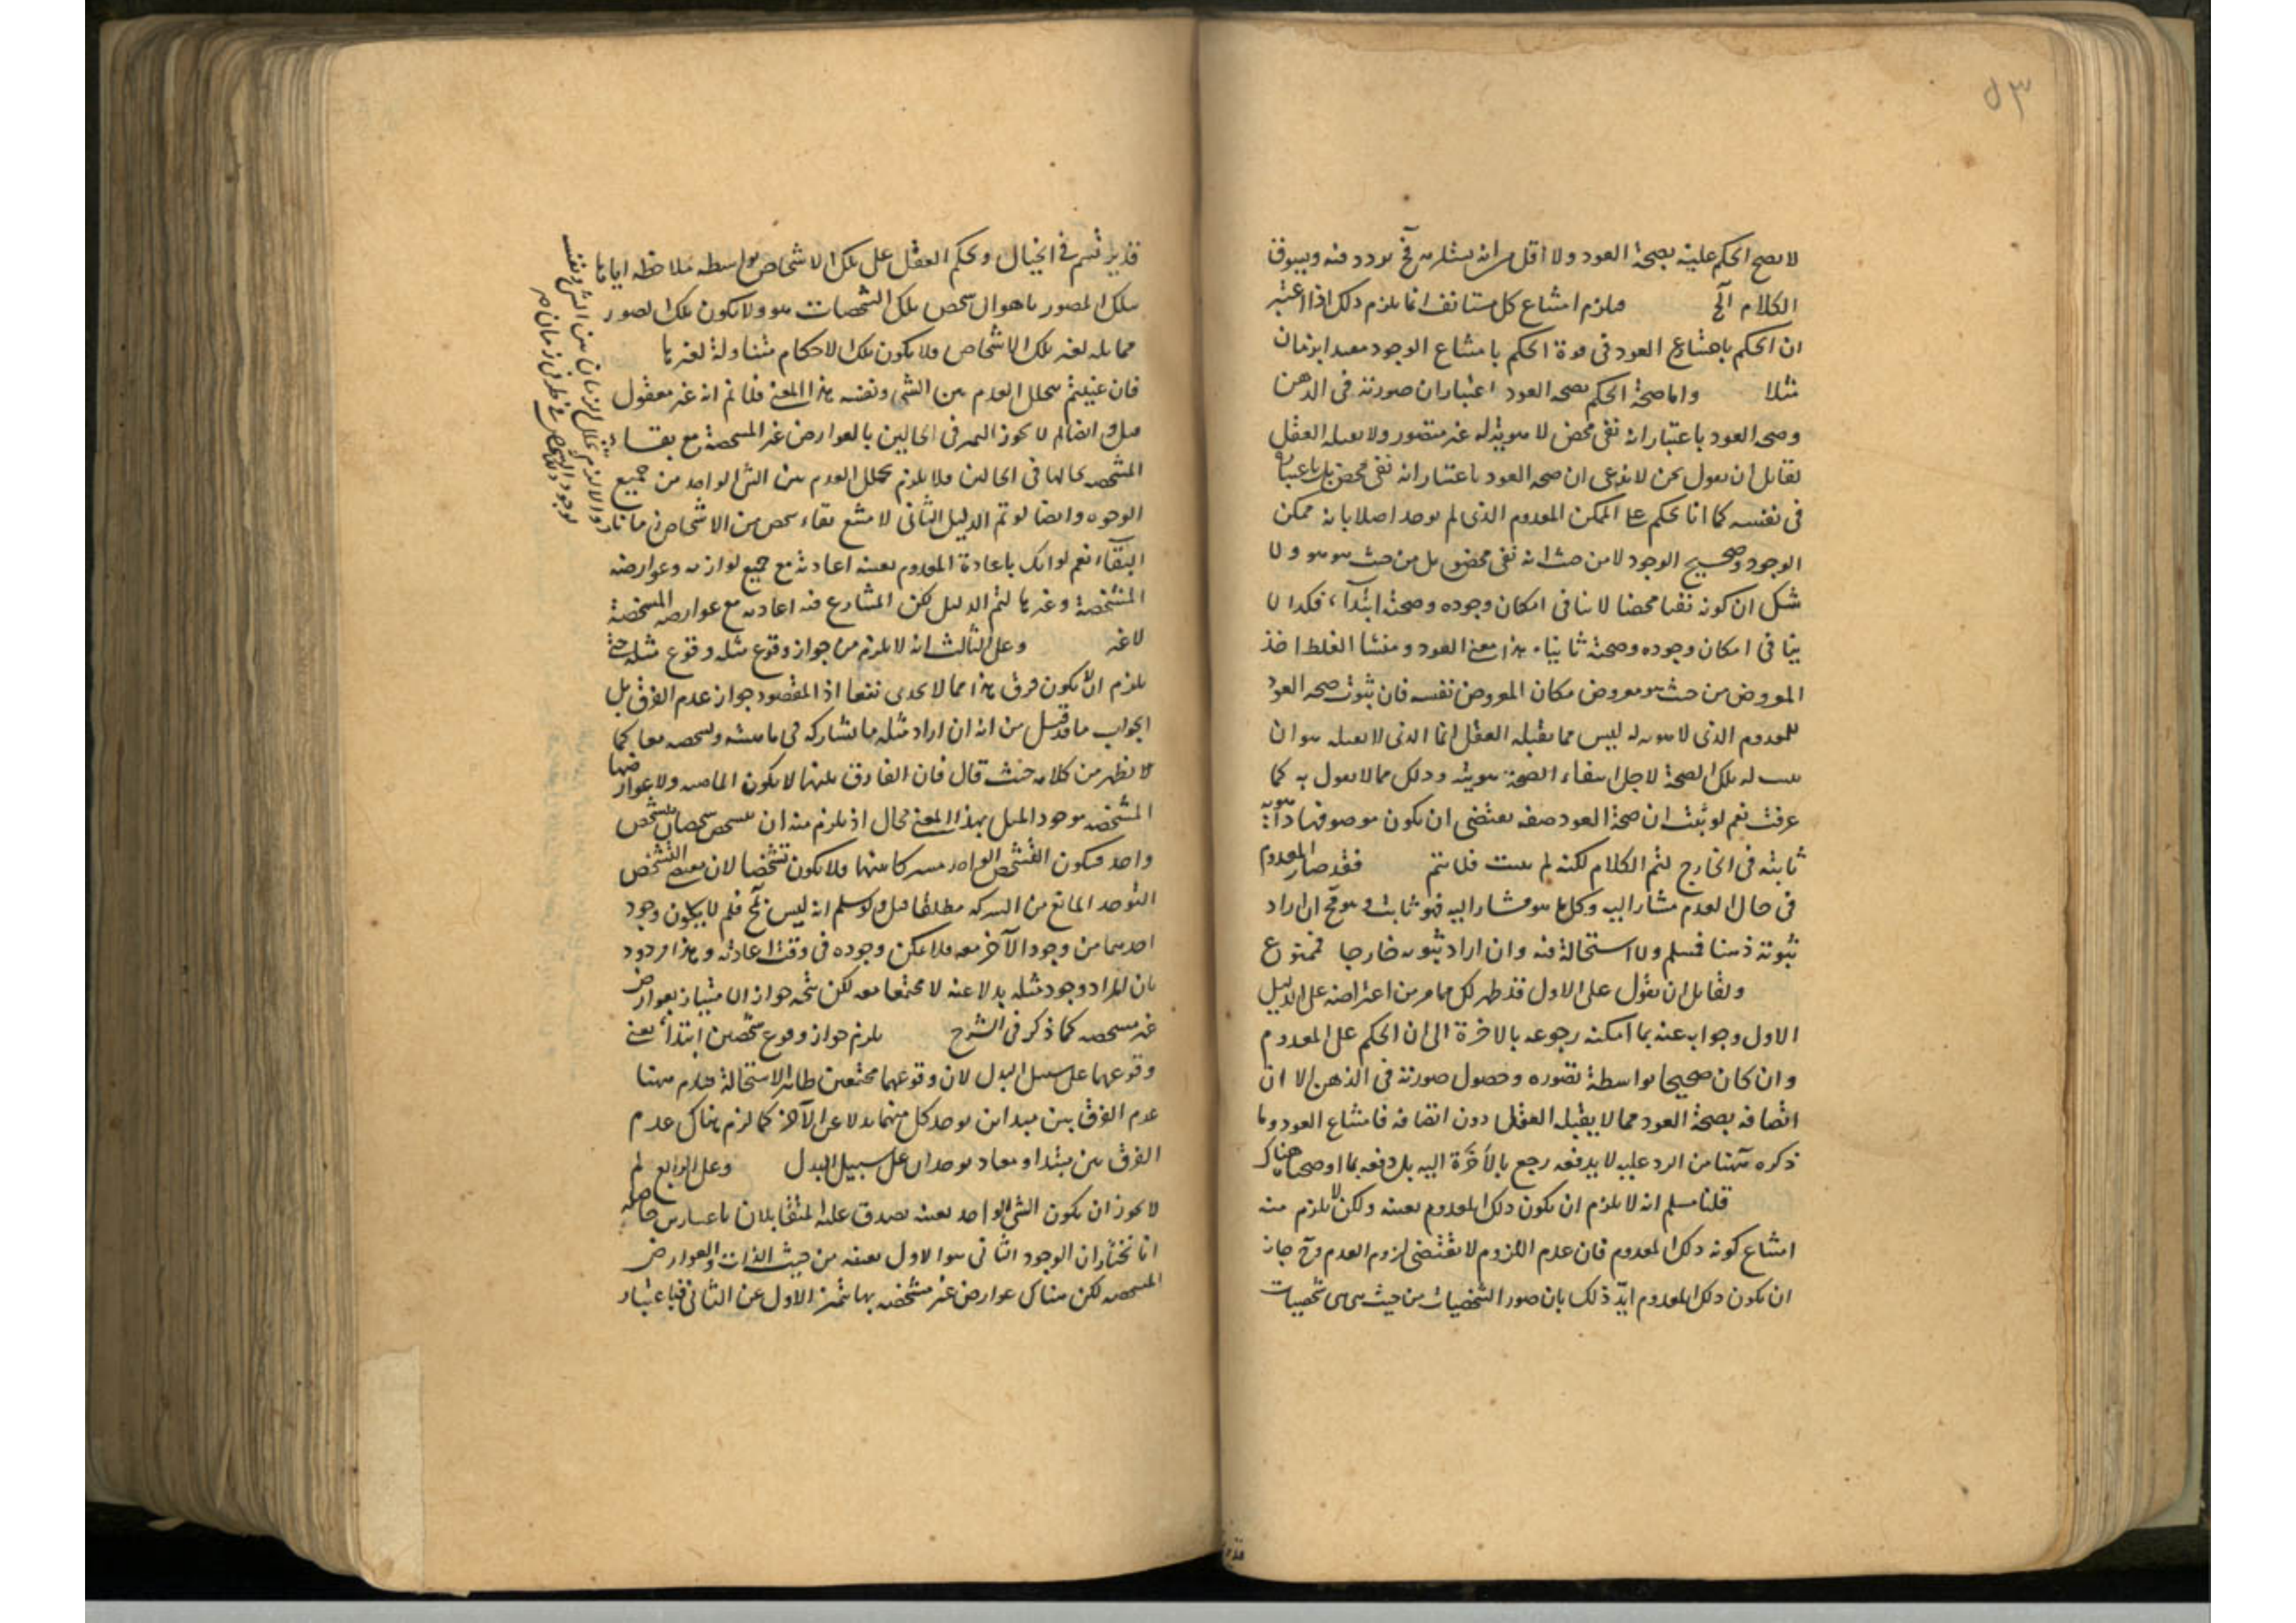 ٥٣
لا يصح الحكم عليه بصحة العود ولا اقل من انه يشار فح يردد فيه ويسوق
الكلام الخ فيلزم امتناع كل مستانف انما يلزم ذلك اذا اعتبر
ان الحكم بامتناع العود في قوة الحكم بامتناع الوجود مقيدا بزمان
مثلا واما صحة الحكم بصحة العود اعتبار ان صورته في الذهن
وصحة العود باعتبار انه نفي محض لا هوية له غير متصور ولا يقبله العقل
لقائل ان يقول نحن لا ندعي ان صحة العود باعتبار انه نفي محض بل باعتبار
في نفسه كما انا نحكم على الممكن المعدوم الذي لم يوجد اصلا بانه ممكن
الوجود وصحيح الوجود لا من حيث انه نفي محض بل من حيث هو هو ولا
شك ان كونه نفيا محضا لا ينافي امكان وجوده وصحته ابتداء فكذا لا
ينافي امكان وجوده وصحته ثانيا هذا معنى العود ومنشا الغلط اخذ
المعروض من حيث هو معروض مكان المعروض نفسه فان ثبوت صحة العود
للمعدوم الذي لا هوية له ليس مما يقبله العقل انما الذي لا يقبله هو ان
يثبت له تلك الصحة لاجل انتفاء الصحة هويته وذلك مما لا يقول به كما
عرفت نعم لو ثبت ان صحة العود صفة يقتضي ان يكون موصوفها ذا هوية
ثابتة في الخارج لتم الكلام لكنه لم يثبت فلا يتم فقد صار المعدوم
في حال العدم مشارا اليه وكل ما هو مشار اليه فهو ثابت وهو فح ان اراد
ثبوته ذهنا فمسلم ولا استحالة فيه وان اراد ثبوته خارجا فممنوع
ولقائل ان يقول على الاول قد ظهر لك مما مر من اعتراضه على الدليل
الاول وجوابه عنه بما امكنه رجوعه بالاخرة الى ان الحكم على المعدوم
وان كان صحيحا بواسطة تصوره وحصول صورته في الذهن الا ان
اتصافه بصحة العود مما لا يقبله العقل دون اتصافه فامتناع العود وما
ذكره ههنا من الرد عليه لا يدفعه رجع بالاخرة اليه بل دفعه بما اوضحناه هناك
قلنا مسلم انه لا يلزم ان يكون ذلك المعدوم بعينه ولكن لا يلزم منه
امتناع كونه ذلك المعدوم فان عدم اللزوم لا يقتضي لزوم العدم وح جاز
ان يكون ذلك المعدوم ايد ذلك بان صور الشخصيات من حيث هي هي شخصيات
قد يرتسم في الخيال ويحكم العقل على تلك الاشخاص بواسطة ملاحظة اياها
بتلك الصور ما هو ان شخص تلك الشخصيات هو ولا يكون تلك الصور
مماثلة لغير تلك الاشخاص فلا يكون تلك الاحكام متناولة لغيرها
فان عنيتم بتخلل العدم بين الشي ونفسه هذا المعنى فلا نم انه غير معقول
قيل وايضا لم لا يجوز التميز في الحالين بالعوارض غير المشخصة مع بقاء
المشخصة بحالها في الحالين فلا يلزم تخلل العدم بين الشي الواحد من جميع
الوجوه وايضا لو تم الدليل الثاني لامتنع بقاء شخص من الاشخاص زمانا
البقاء نعم لو اتك باعادة المعدوم بعينه اعادته مع جميع لوازمه وعوارضه
المشخصة وغيرها لتم الدليل لكن المتنازع فيه اعادته مع عوارضه المشخصة
لا غير وعلى الثالث انه لا يلزم من جواز وقوع مثله وقوع مثله حتى
يلزم ان لا يكون فرق هذا مما لا يجدي نفعا اذ المقصود جواز عدم الفرق بل
الجواب ما قد قيل من انه ان اراد مثله ما يشاركه في ماهيته وتشخصه معا كما
لا يظهر من كلامه حيث قال فان الفارق بينهما لا يكون الماهية ولا عوارضها
المشخصة فوجود المثل بهذا المعنى محال اذ يلزم منه ان يتشخص شخصان بتشخص
واحد فيكون التشخص الواحد مشتركا بينهما فلا يكون تشخصا لان معنى التشخص
التوحد المانع من الشركة مطلقا قيل ولو سلم انه ليس بمح فلم لا يكون وجود
احدهما من وجود الآخر معه فلا يمكن وجوده في وقت اعادته وهذا مردود
بان المراد وجود مثله بدلا عنه لا مجتمعا معه لكن يتجه جواز الامتياز بعوارض
غير مشخصة كما ذكر في الشرح يلزم جواز وقوع شخصين ابتداء يعني
وقوعهما على سبيل البدل لان وقوعهما مجتمعين ظاهر الاستحالة فيلزم ههنا
عدم الفرق بين مبتداين يوجد كل منهما بدلا عن الآخر كما لزم هناك عدم
الفرق بين مبتدا ومعاد يوجدان على سبيل البدل وعلى الرابع لم
لا يجوز ان يكون الشي الواحد بعينه يصدق عليه المتقابلان باعتبارين حاصله
انا نختار ان الوجود الثاني هو الاول بعينه من حيث الذات والعوارض
المشخصة لكن هناك عوارض غير مشخصة بها يتميز الاول عن الثاني فباعتبار
والا لزم تخلل الزمان بين الشي ونفسه
لوجود ذلك الشخص في طرفي زمان